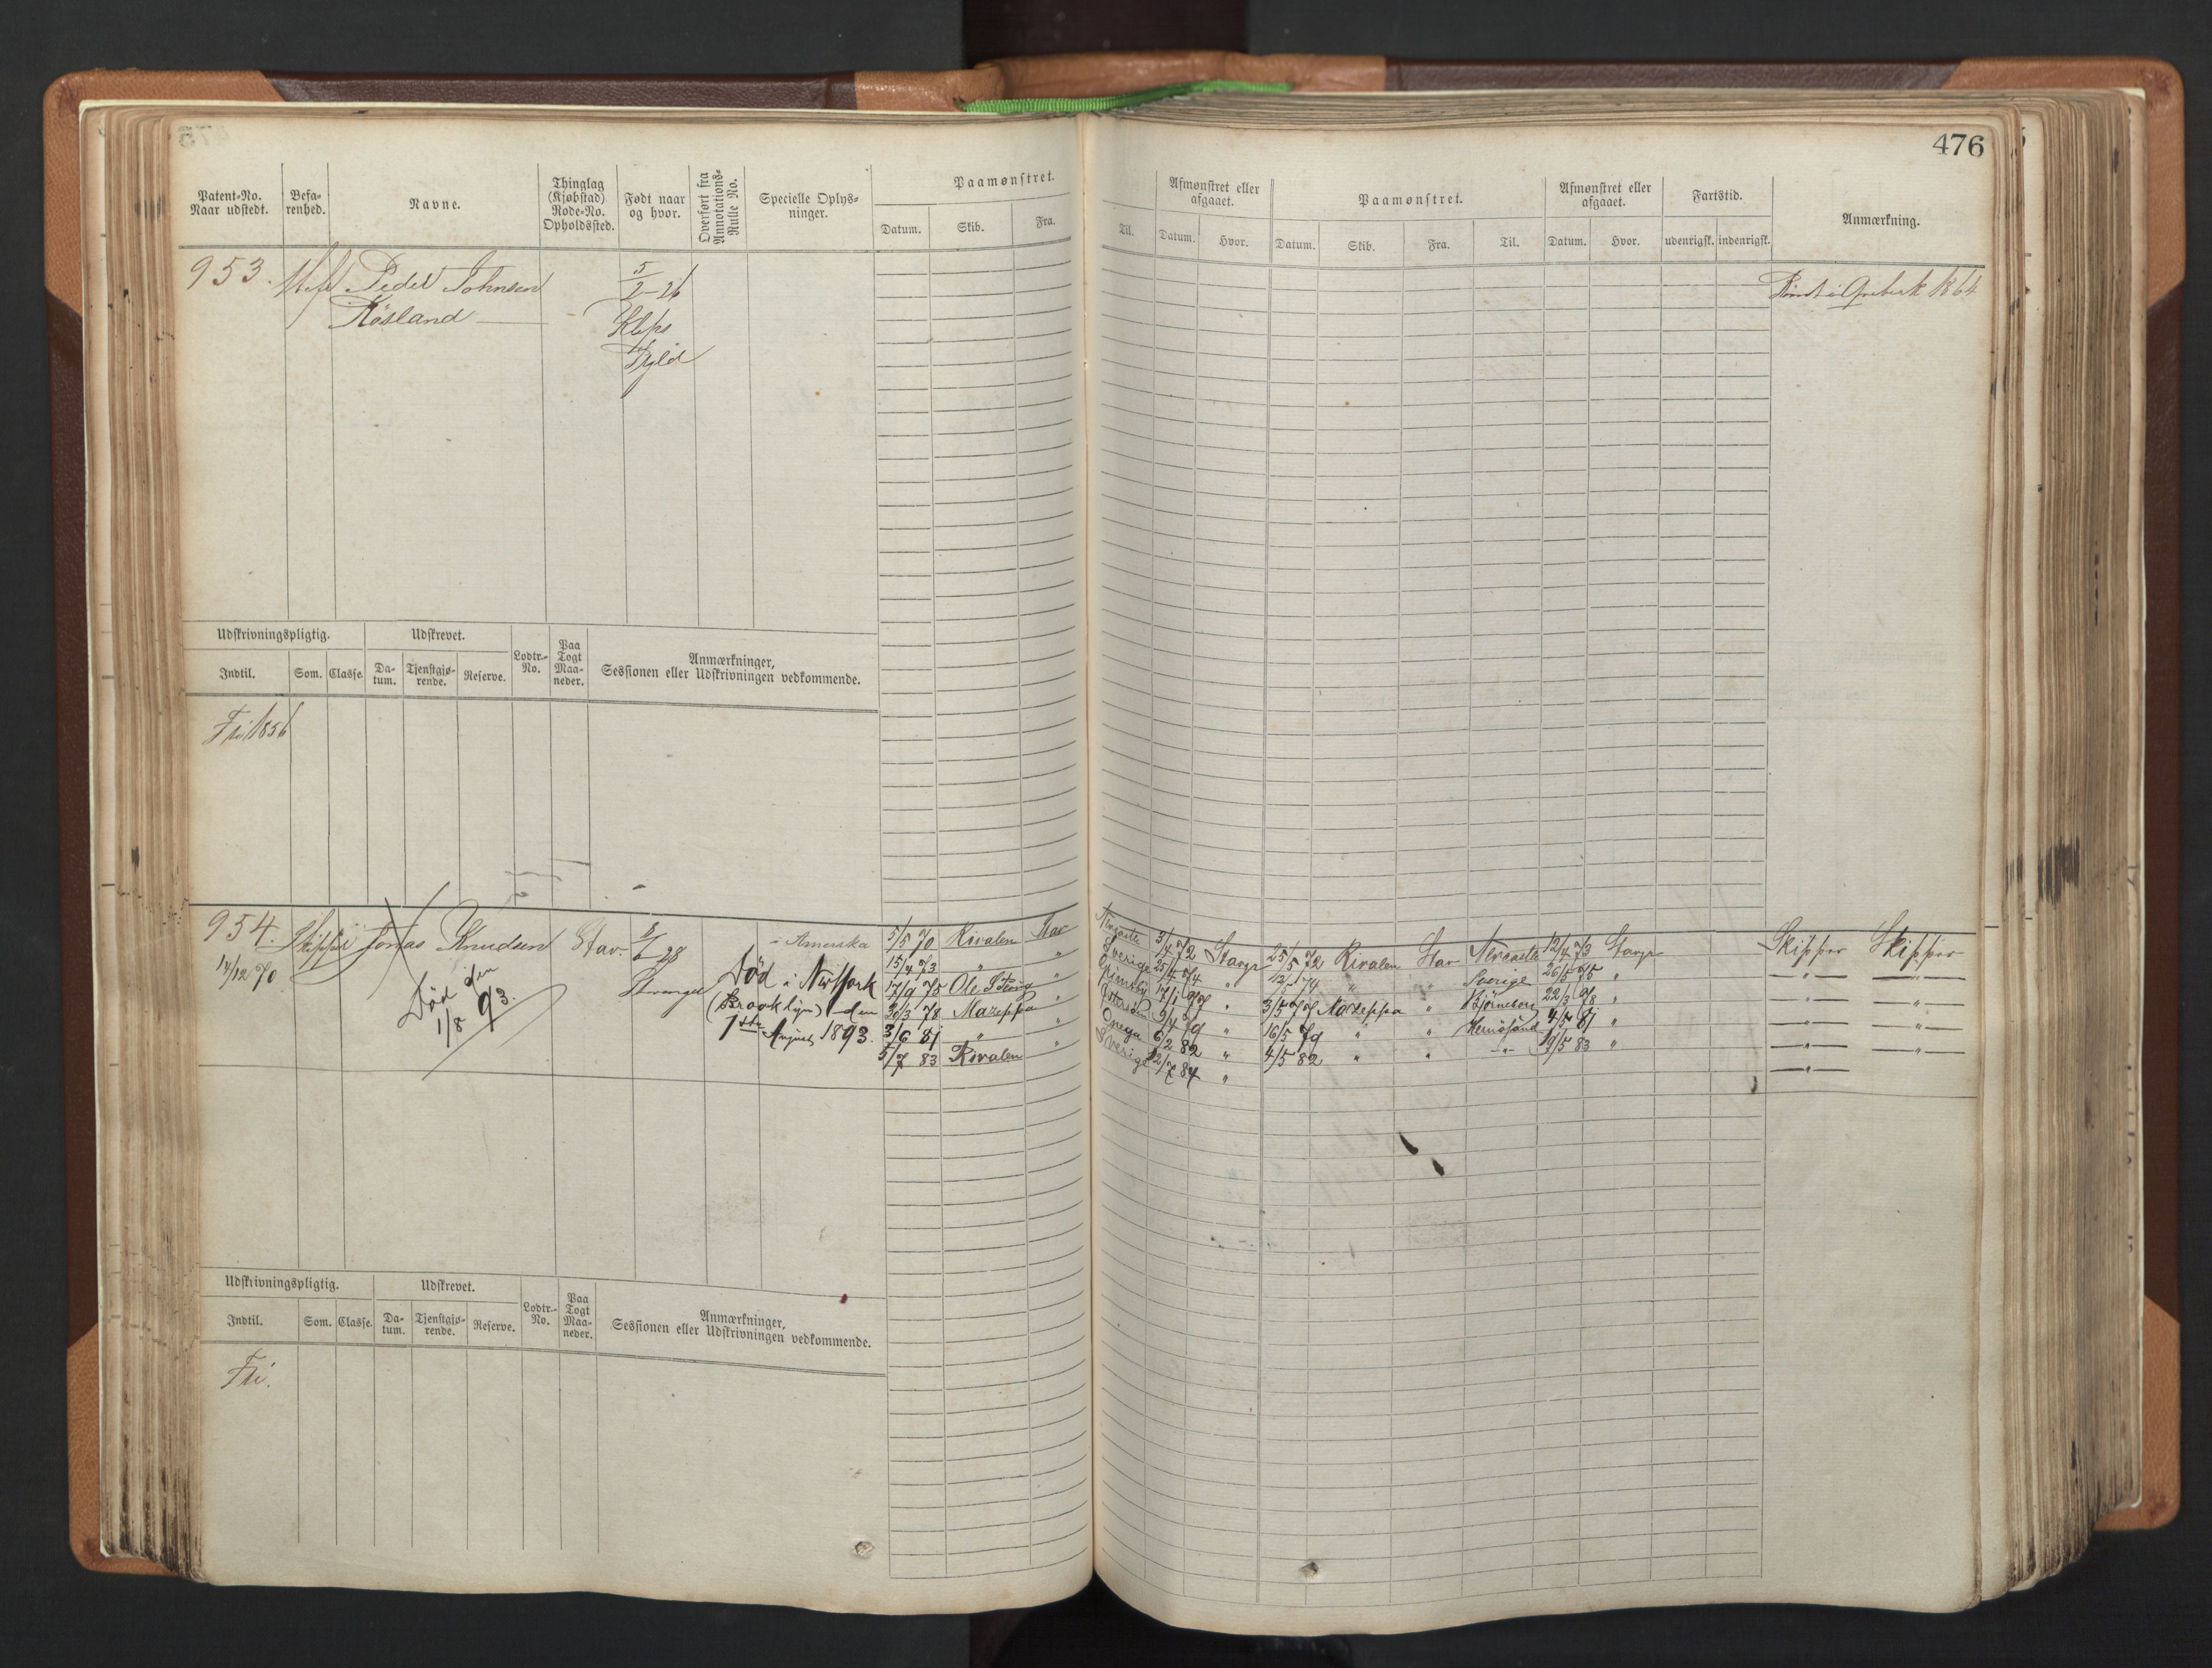 476
Patent-No. Naar udstedt.
Befa-renhed.
Navne.
Thinglag (Kjøbstad) Rode-No. Opholdssted.
Født naar og hvor.
Overført fra Annotations-Rulle No.
Specielle Oplys-ninger.
Paamønstret.
Datum. Skib. Fra. Til.
Afmønstret eller afgaaet.
Datum. Hvor.
Paamønstret.
Datum. Skib. Fra. Til.
Afmønstret eller afgaaet.
Datum. Hvor.
Fartstid.
udenrigsk. indenrigsk.
Anmærkning.
953. Peder Johnsen 5/2-26 1864
Røsland
Klepo
Udskrivningspligtig. Udskrevet. Lodtr.-No. Paa Togt Maa-neder. Anmærkninger, Sessionen eller Udskrivningen vedkommende.
Indtil. Som. Classe. Da-tum. Tjenstgjø-rende. Reserve.
Fri 1856
954. Skipper Jonas Knudsen Stav. 28 i Amerika 5/5 70 Rivalen Stav Newcastle 3/4 72 Stavgr 25/5 72 Rivalen Stav Newcastle 12/4 73 Stavgr Skipper Skipper
14/12 70. Stavanger Død i NewYork 15/4 73 " " Sverige 25/4 74 " " " Sverige 26/5 75 " —"— —"—
Død den 1/8 93. (Brooklyn) den 17/9 75 Ole " 17/1 77 " 3/5 77 Mazeppa " Bjørneborg 22/3 78 " —"— —"—
1ste August 1893. 20/3 78 Mazeppa " 9/4 79 " 16/5 79 " " Hernøsand 4/5 81 " —"— —"—
3/6 81 " " Onega 6/2 82 " 4/5 82 " " —"— 19/5 83 " —"— —"—
5/7 83 Rivalen " Sverige 12/7 84 " —"—
Udskrivningspligtig. Udskrevet. Lodtr.-No. Paa Togt Maa-neder. Anmærkninger, Sessionen eller Udskrivningen vedkommende.
Indtil. Som. Classe. Da-tum. Tjenstgjø-rende. Reserve.
Fri.